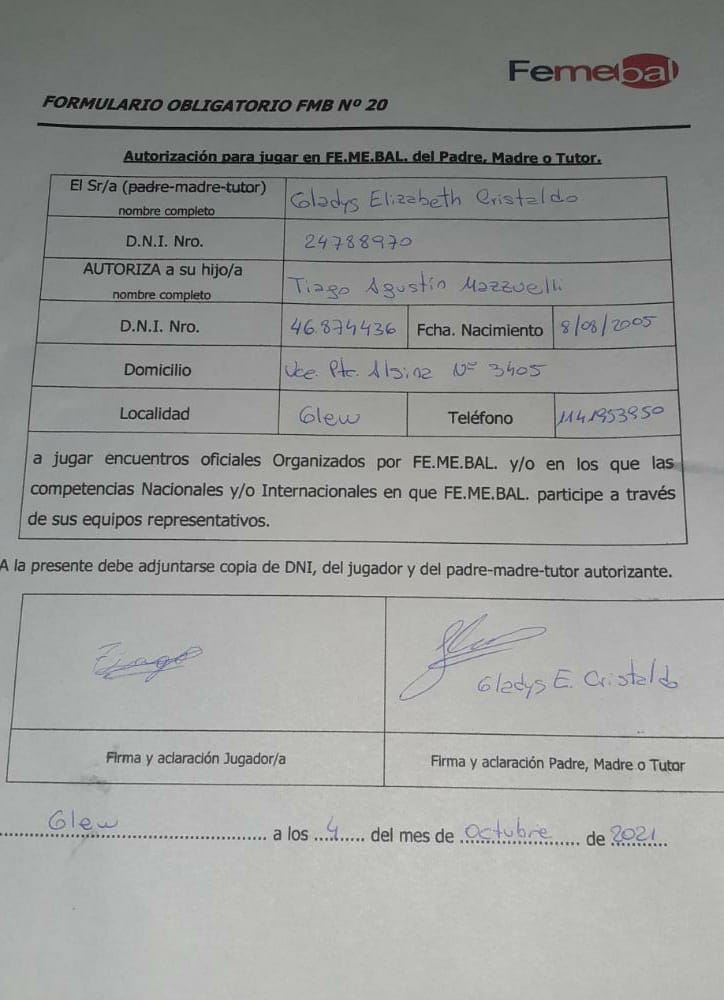 Femebal
FORMULARIO OBLIGATORIO FMB Nº 20
Autorización para jugar en FE.ME.BAL. del Padre, Madre o Tutor.
El Sr/a (padre-madre-tutor) nombre completo Gladys Elizabeth Cristaldo
D.N.I. Nro. 24788970
AUTORIZA a su hijo/a nombre completo Tiago Agustín Mazzuelli
D.N.I. Nro. 46.874436 Fcha. Nacimiento 8/08/2005
Domicilio Vce. Pte. Alsina Nº 3405
Localidad Glew Teléfono 1141953950
a jugar encuentros oficiales Organizados por FE.ME.BAL. y/o en los que las
competencias Nacionales y/o Internacionales en que FE.ME.BAL. participe a través
de sus equipos representativos.
A la presente debe adjuntarse copia de DNI, del jugador y del padre-madre-tutor autorizante.
Tiago
Gladys E. Cristaldo
Firma y aclaración Jugador/a Firma y aclaración Padre, Madre o Tutor
Glew a los 4 del mes de Octubre de 2021